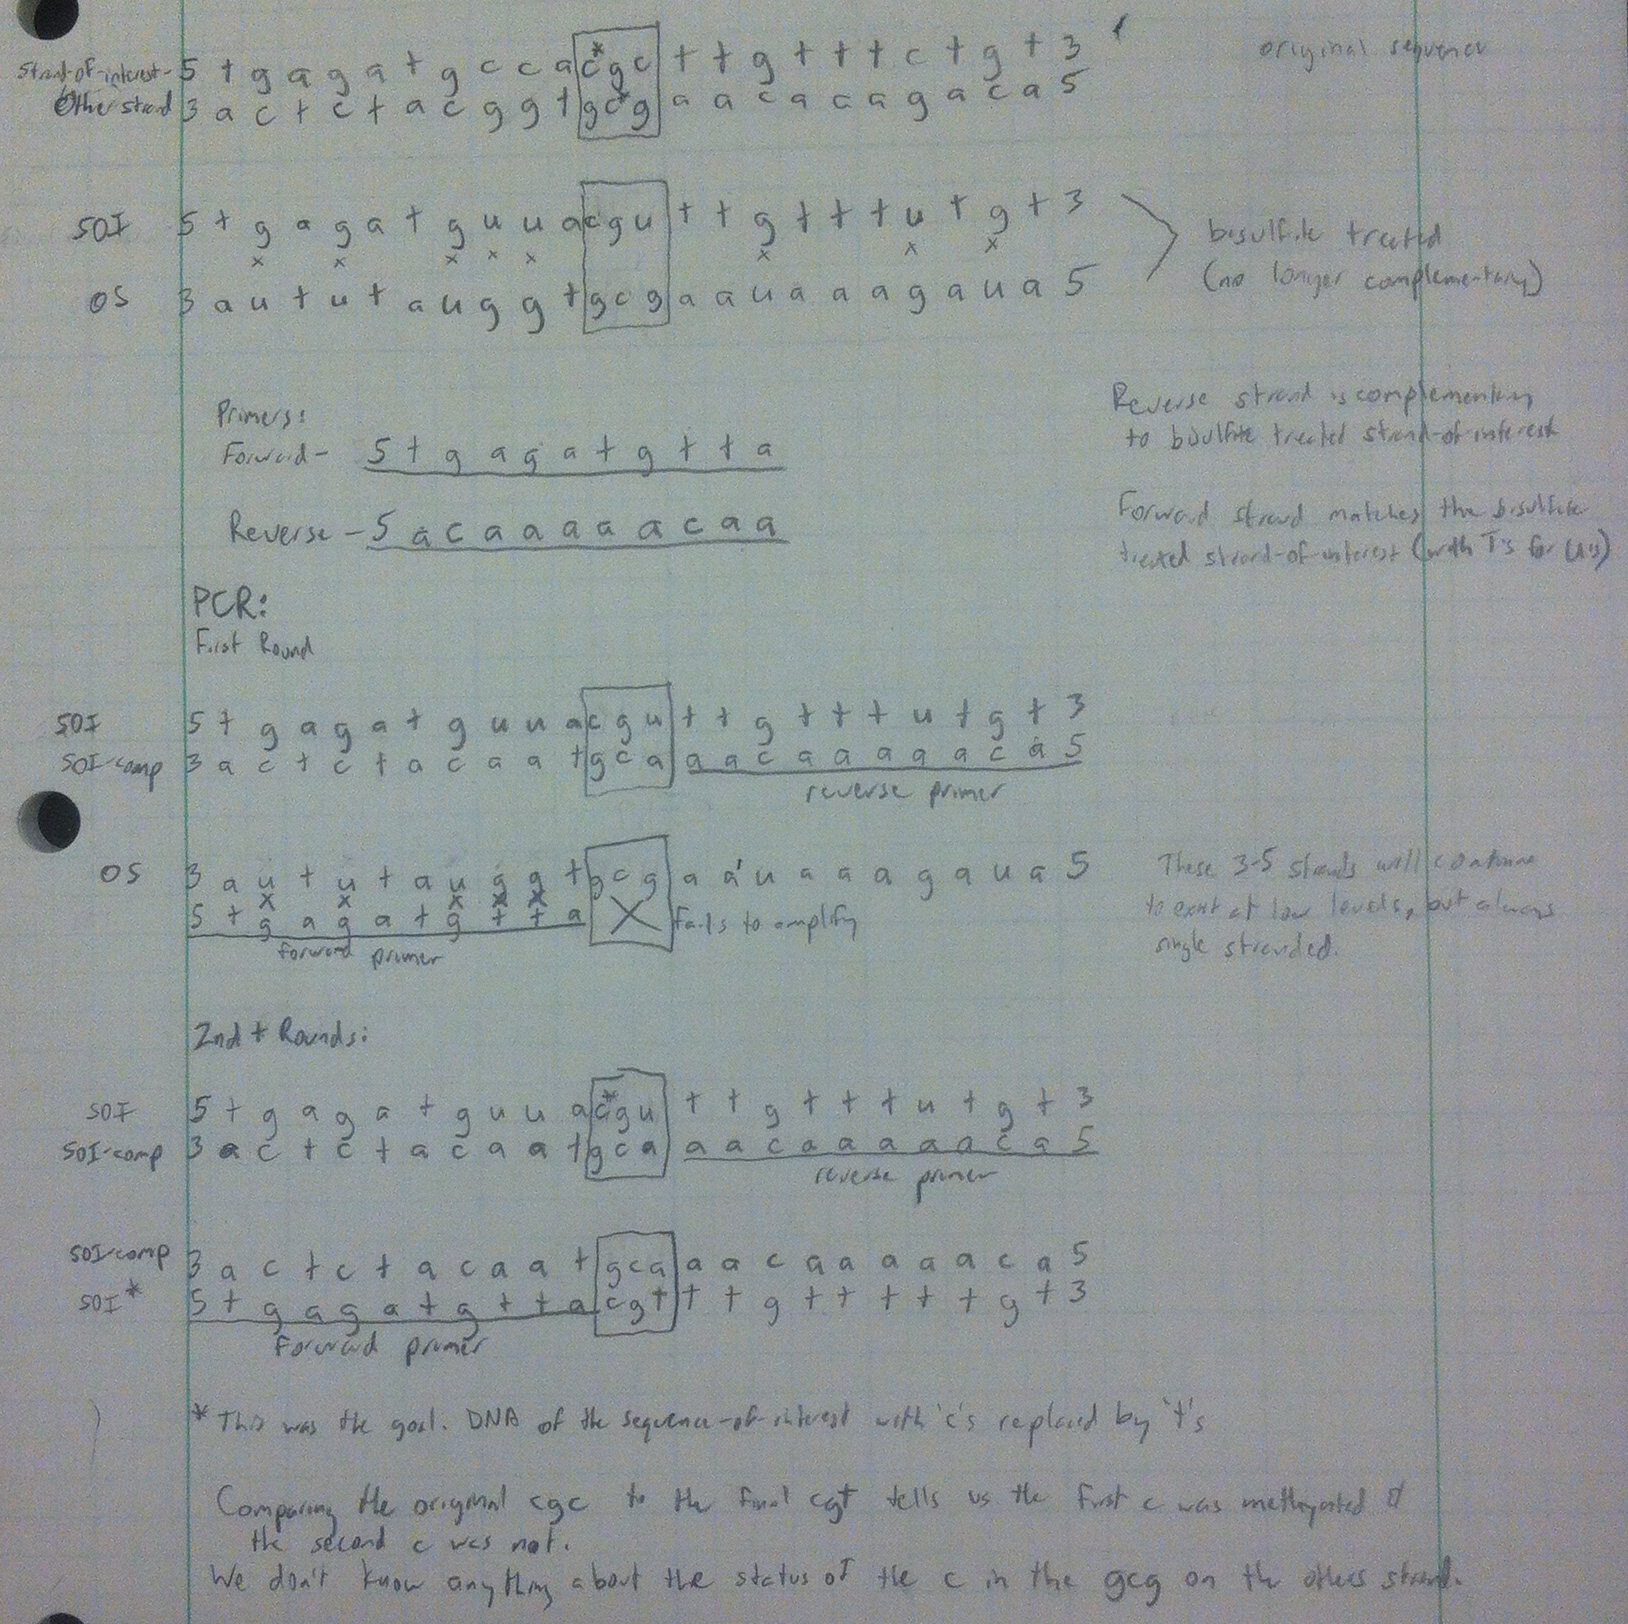 original sequence
Strand-of-interest- 5 t g a g a t g c c a c*g c t t g t t t c t g t 3
Other strand 3 a c t c t a c g g t g c* g a a c a c a g a c a 5
SOI 5 t g a g a t g u u a c g u t t g t t t u t g t 3
x x x x x x x x
OS 3 a u t u t a u g g t g c g a a u a a a g a u a 5
bisulfite treated
(no longer complementary)
Primers:
Forward- 5 t g a g a t g t t a
Reverse - 5 a c a a a a a c a a
Reverse strand is complementary
to bisulfite treated strand-of-interest
Forward strand matches the bisulfite
treated strand-of-interest (with T's for U's)
PCR:
First Round
SOI 5 t g a g a t g u u a c g u t t g t t t u t g t 3
SOI-comp 3 a c t c t a c a a t g c a a a c a a a a a c a 5
reverse primer
OS 3 a u t u t a u g g t g c g a a u a a a g a u a 5
x x x x x
5 t g a g a t g t t a X fails to amplify
forward primer
These 3-5 strands will continue
to exist at low levels, but always
single stranded.
2nd + Rounds:
SOI 5 t g a g a t g u u a c*g u t t g t t t u t g t 3
SOI-comp 3 a c t c t a c a a t g c a a a c a a a a a c a 5
reverse primer
SOI-comp 3 a c t c t a c a a t g c a a a c a a a a a c a 5
SOI* 5 t g a g a t g t t a c g t t t g t t t t t g t 3
Forward primer
* This was the goal. DNA of the sequence-of-interest with 'c's replaced by 't's
Comparing the original cgc to the final cgt tells us the first c was methylated &
the second c was not.
We don't know anything about the status of the c in the gcg on the others strand.